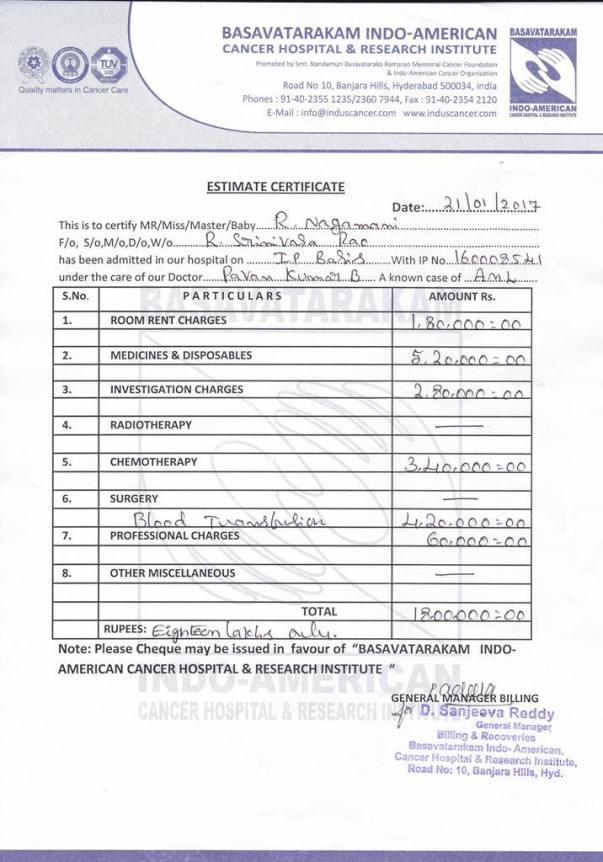 BASAVATARAKAM INDO-AMERICAN
CANCER HOSPITAL & RESEARCH INSTITUTE
Promoted by Smt. Nandamuri Basavataraka Ramarao Memorial Cancer Foundation
& Indo-American Cancer Organisation
Road No 10, Banjara Hills, Hyderabad 500034, India
Phones : 91-40-2355 1235/2360 7944, Fax : 91-40-2354 2120
E-Mail : info@induscancer.com www.induscancer.com
BASAVATARAKAM
INDO-AMERICAN
CANCER HOSPITAL & RESEARCH INSTITUTE
TUV
Quality matters in Cancer Care
ESTIMATE CERTIFICATE
Date:......21/01/2017
This is to certify MR/Miss/Master/Baby....R. Nagamani
F/o, S/o,M/o,D/o,W/o......R. Srinivasa Rao
has been admitted in our hospital on ....IP Basis.....With IP No.160008541
under the care of our Doctor....Pavan Kumar B... A known case of ..AML...
S.No. PARTICULARS AMOUNT Rs.
1. ROOM RENT CHARGES 1,80,000=00
2. MEDICINES & DISPOSABLES 5,20,000=00
3. INVESTIGATION CHARGES 2,80,000=00
4. RADIOTHERAPY —
5. CHEMOTHERAPY 3,40,000=00
6. SURGERY —
Blood Transfusion 4,20,000=00
7. PROFESSIONAL CHARGES 60,000=00
8. OTHER MISCELLANEOUS —
TOTAL 1800000=00
RUPEES: Eighteen lakhs only.
Note: Please Cheque may be issued in favour of “BASAVATARAKAM INDO-
AMERICAN CANCER HOSPITAL & RESEARCH INSTITUTE “
GENERAL MANAGER BILLING
for D. Sanjeeva Reddy
General Manager,
Billing & Recoveries
Basavatarakam Indo- American,
Cancer Hospital & Research Institute,
Road No: 10, Banjara Hills, Hyd.
BASAVATARAKAM
INDO-AMERICAN
CANCER HOSPITAL & RESEARCH IN